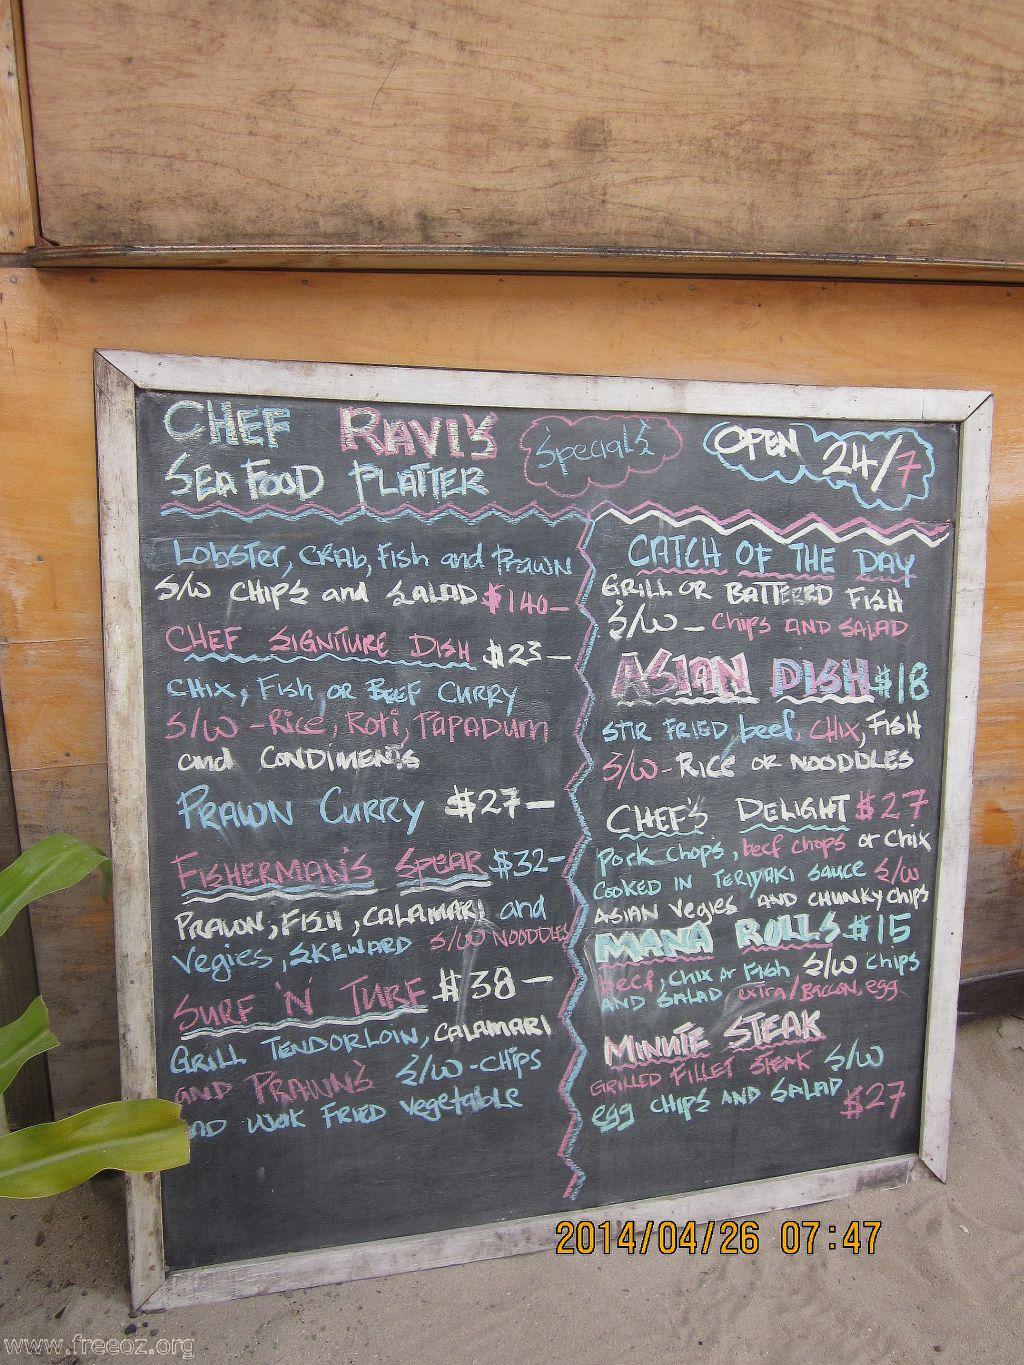 CHEF RAVI'S
SEAFOOD PLATTER
Special's
OPEN 24/7
LOBSTER, CRAB, FISH and PRAWN
S/W CHIPS and SALAD $140-
CHEF SIGNITURE DISH $23-
CHIX, FISH, OR BEEF CURRY
S/W - RICE, ROTI, PAPADUM
and CONDIMENTS
PRAWN CURRY $27-
FISHERMAN'S SPEAR $32-
PRAWN, FISH, CALAMARI and
Vegies, SKEWARD S/W NOODDLES
SURF 'N' TURF $38-
GRILL TENDORLOIN, CALAMARI
AND PRAWN'S S/W - CHIPS
AND WOK FRIED vegetable
CATCH OF THE DAY
GRILL OR BATTERED FISH
S/W - Chips AND SALAD
ASIAN DISH $18
STIR FRIED beef, CHIX, FISH
S/W - RICE OR NOODDLES
CHEF'S DELIGHT $27
PORK chops, beef chops or CHIX
COOKED IN TERIYAKI SAUCE S/W
ASIAN Vegies AND CHUNKY CHIPS
MANA ROLLS $15
BEEF, CHIX or FISH S/W CHIPS
AND SALAD extra/BACCON, egg
MINUTE STEAK
GRILLED FILLET STEAK S/W
egg CHIPS AND SALAD $27
2014/04/26 07:47
www.freeoz.org